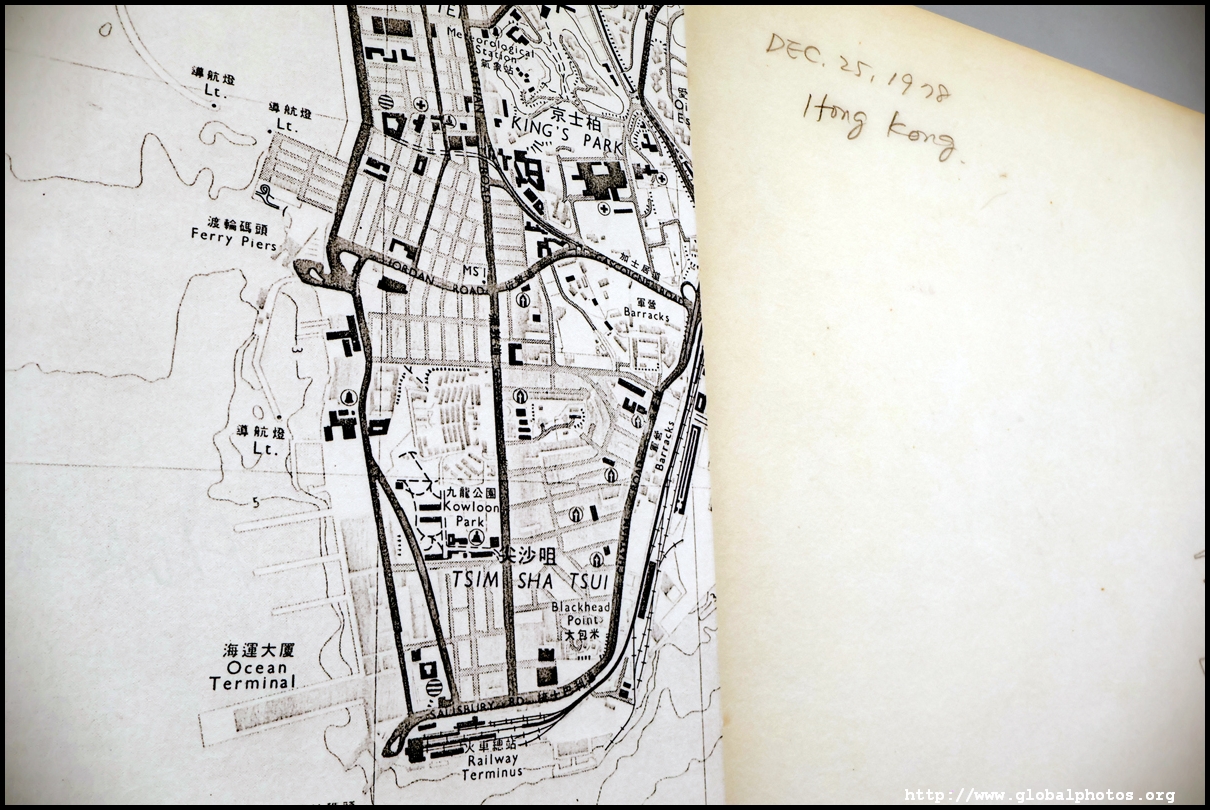 Meteorological
Station
氣象站
導航燈
Lt.
導航燈
Lt.
京士柏
KING'S PARK
渡輪碼頭
Ferry Piers
加士居道
GASCOIGNE ROAD
JORDAN
ROAD
MS
軍營
Barracks
導航燈
Lt.
5
軍營
Barracks
九龍公園
Kowloon
Park
尖沙咀
TSIM SHA TSUI
Blackhead
Point
大包米
海運大厦
Ocean
Terminal
SALISBURY RD
火車總站
Railway
Terminus
DEC. 25, 1978
Hong Kong.
http://www.globalphotos.org